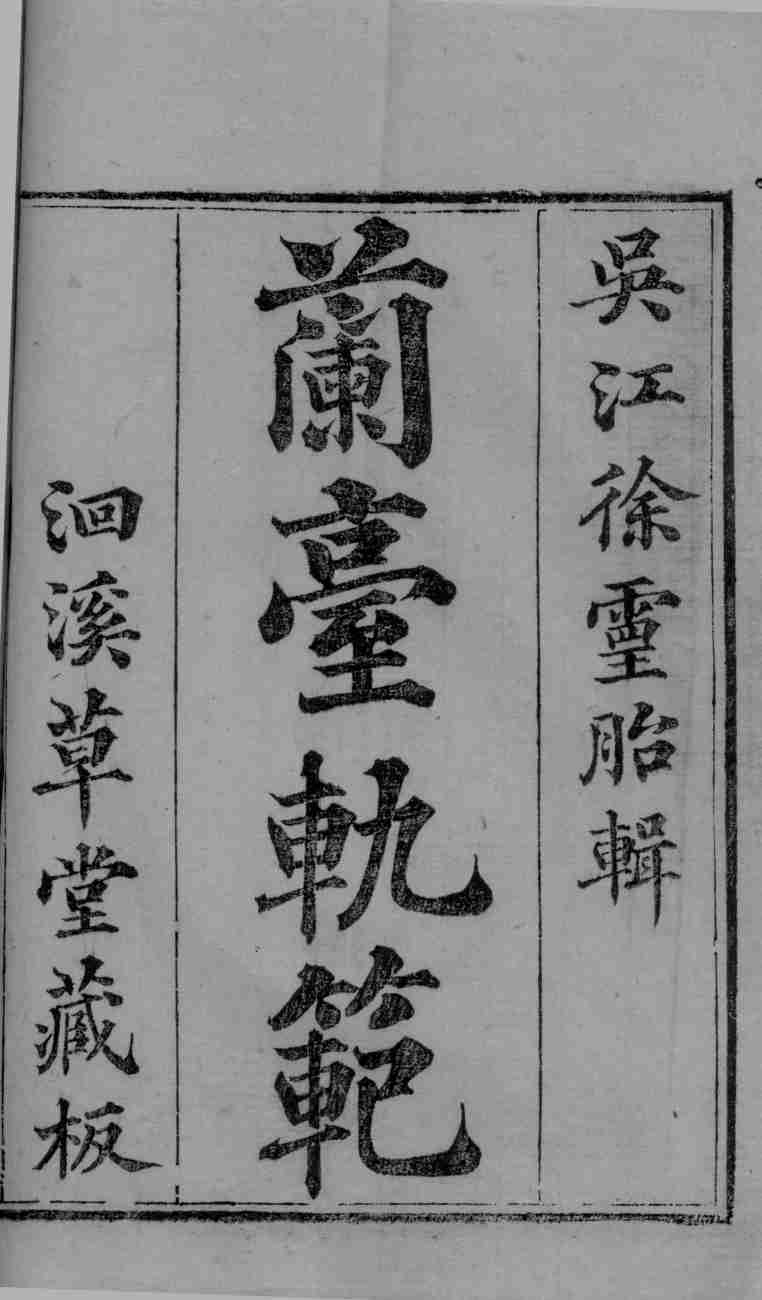 吳江徐靈胎輯
蘭臺軌範
洄溪草堂藏板